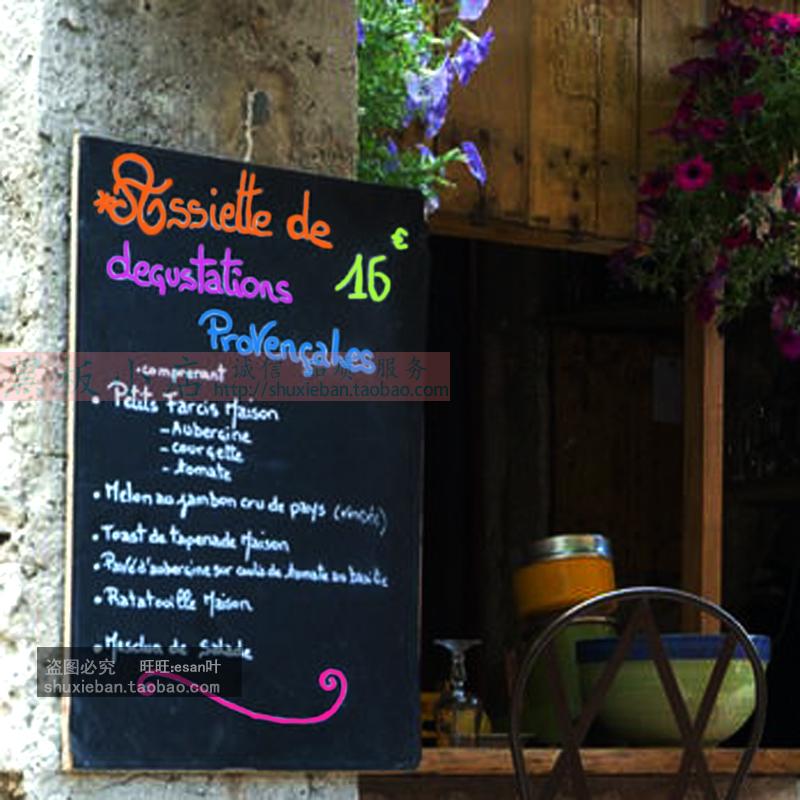 *Assiette de
degustations 16 €
Provençales
•comprenant
• Petits Farcis Maison
-Aubergine
-courgette
-tomate
• Melon au jambon cru de pays
• Toast de tapenade Maison
• Pavé d'aubergine sur coulis de tomate au basilic
• Ratatouille Maison
• Mesclun de Salade
黑板小店 诚信 品质 服务
http://shuxieban.taobao.com
盗图必究 旺旺:esan叶
shuxieban.taobao.com